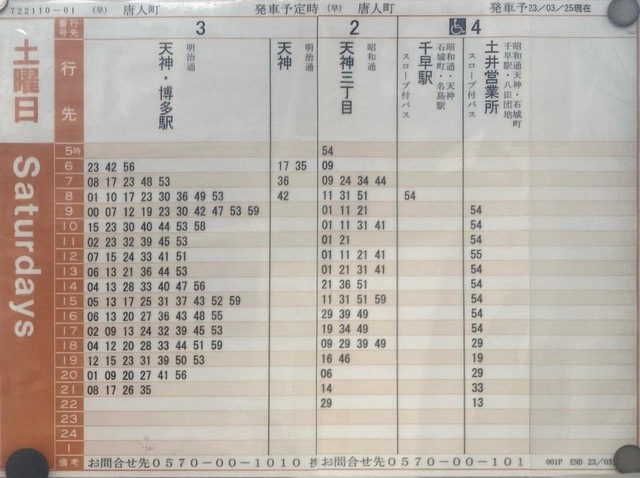 722110-01 (早) 唐人町 発車予定時 (早) 唐人町 発車予 23/03/25現在
土曜日
Saturdays
行先番号 3 2 4
行先 天神・博多駅 明治通 天神 明治通 天神三丁目 昭和通 千早駅 昭和通・天神 石城町・名島駅 スロープ付バス 土井営業所 昭和通天神・石城町 千早駅・八田団地 スロープ付バス
5時 54
6 23 42 56 17 35 09
7 08 17 23 48 53 36 09 24 34 44
8 01 10 17 23 30 36 49 53 42 11 31 51 54
9 00 07 12 19 23 30 42 47 53 59 01 11 21 54
10 15 23 30 40 44 53 58 01 11 31 41 54
11 02 23 32 39 45 53 01 21 54
12 07 15 24 33 41 51 01 11 21 41 55
13 06 13 21 36 44 53 01 21 31 41 54
14 04 13 28 33 40 47 56 21 36 51 54
15 05 13 17 25 31 37 43 52 59 11 31 51 59 54
16 06 13 20 27 36 43 48 55 29 39 49 54
17 02 09 13 24 32 39 45 53 19 34 49 54
18 04 12 20 28 33 44 51 59 09 29 39 49 29
19 12 15 23 31 39 50 53 16 46 19
20 01 09 20 27 41 56 06 29
21 08 17 26 35 14 33
22 29 13
23
24
1
備考 お問合せ先0570-00-1010 お問合せ先0570-00-101 001P END 23/03